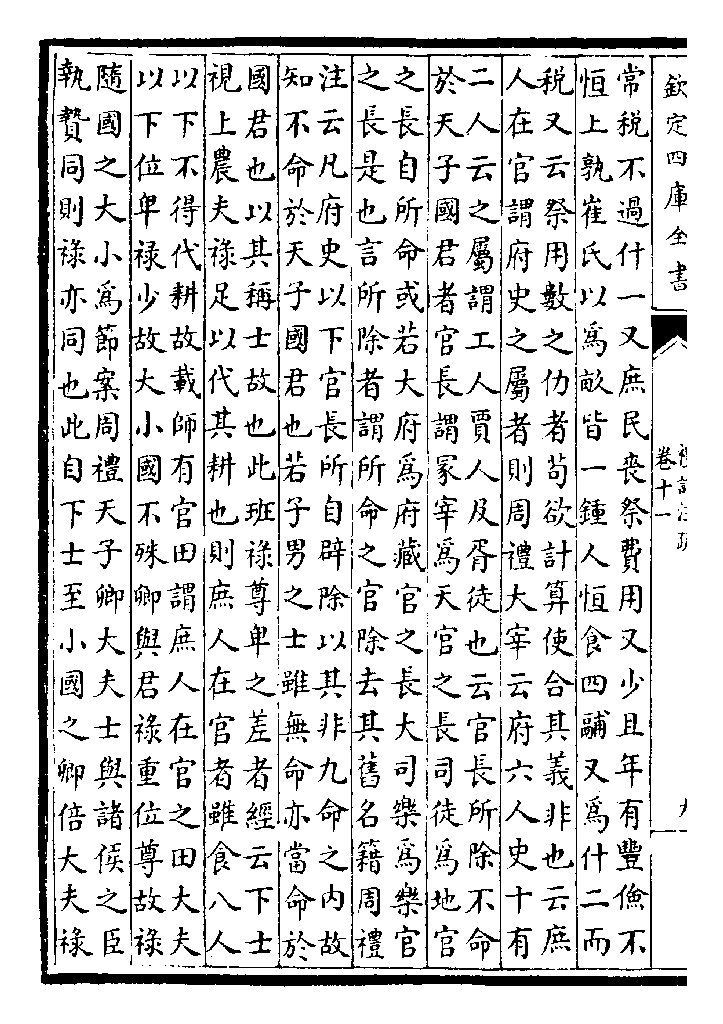 欽定四庫全書
卷十一
常税不過什一又庶民喪祭費用又少且年有豐儉不
恒上孰崔氏以為畝皆一鍾人恒食四鬴又為什二而
税又云祭用數之仂者苟欲計算使合其義非也云庶
人在官謂府史之屬者則周禮大宰云府六人史十有
二人云之屬謂工人賈人及胥徒也云官長所除不命
於天子國君者官長謂冢宰為天官之長司徒為地官
之長自所命或若大府為府藏官之長大司樂為樂官
之長是也言所除者謂所命之官除去其舊名籍周禮
注云凡府史以下官長所自辟除以其非九命之内故
知不命於天子國君也若子男之士雖無命亦當命於
國君也以其稱士故也此班禄尊卑之差者經云下士
視上農夫禄足以代其耕也則庶人在官者雖食八人
以下不得代耕故載師有官田謂庶人在官之田大夫
以下位卑禄少故大小國不殊卿與君禄重位尊故禄
隨國之大小為節案周禮天子卿大夫士與諸侯之臣
執贄同則禄亦同也此自下士至小國之卿倍大夫禄